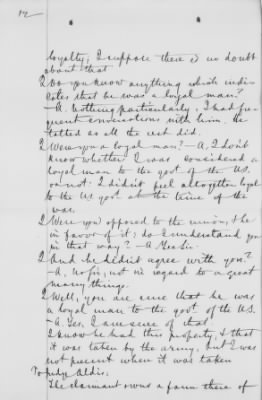 12
loyalty; I suppose there is no doubt
about that
Q Do you know anything which indi-
cates that he was a loyal man?
—A. Nothing particularly, I had fre-
quent conversations with him. He
talked as all the rest did.
Q Were you a loyal man? — A. I don't
know whether I was considered a
loyal man to the govt of the U.S.
or not. I didn't feel altogether loyal
to the US govt at the time of the
war.
Q Were you opposed to the union, & he
in favor of it; do I understand you
in that way? — A Yes Sir.
Q And he didn't agree with you?
—A. No Sir, not in regard to a great
many things.
Q Well, you are sure that he was
a loyal man to the govt of the U.S.
—A. Yes. I am sure of that.
I know he had this property, & that
it was taken by the army, but I was
not present when it was taken
To Judge Aldis.
The claimant owns a farm there of